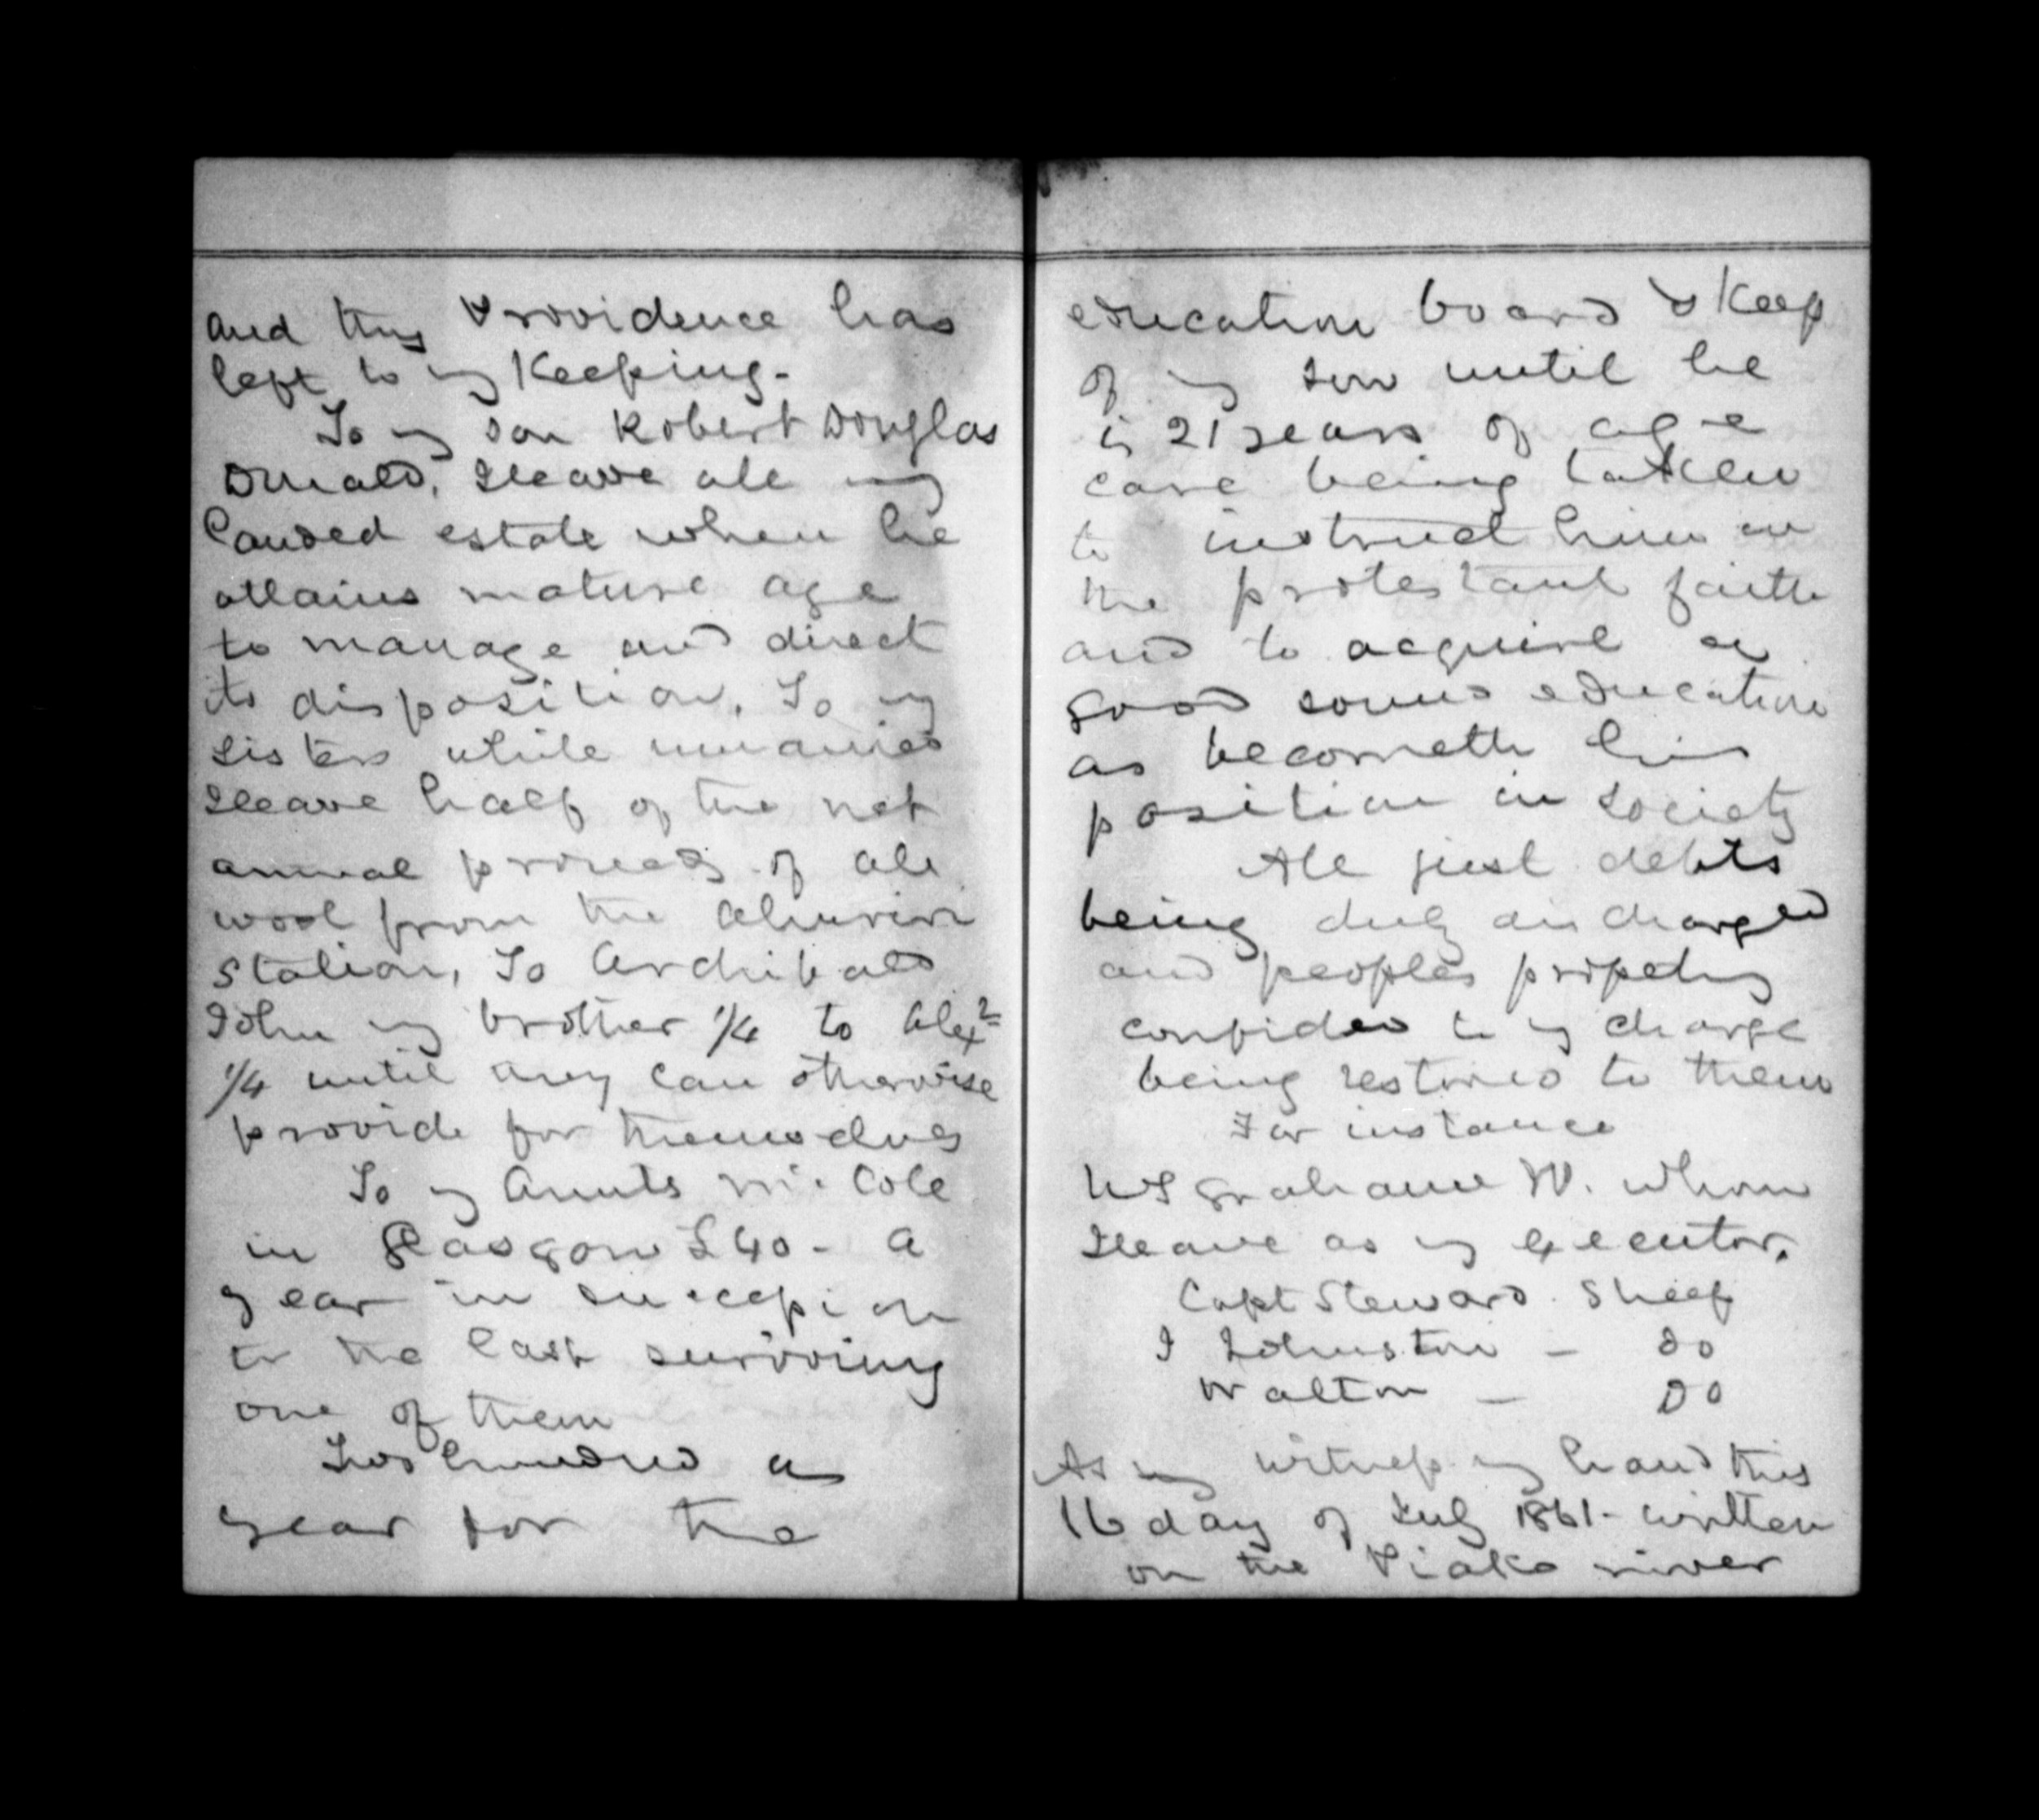 and thus Providence has
left to my Keeping-
To my son Robert Douglas
Donald, I leave all my
landed estate when he
attains mature age
to manage and direct
its disposition, To my
sisters while unmarried
I leave half of the net
annual proceeds of all
wool from the Ahuriri
Station, To Archibald
John my brother 1/4 to Alexr
1/4 until they can otherwise
provide for themselves
To my Aunts Cole
in Glasgow £40- a
year in succession
to the last surviving
one of them
Two hundred a
year for the
education board & Keep
of my son until he
is 21 years of age
care being taken
to instruct him in
the protestant faith
and to acquire a
good sound education
as becometh his
position in society
All just debts
being duly discharged
and peoples property
confided to my charge
being restored to them
For instance
W S Grahame whom
I leave as my executor.
Capt Steward. Sheep
J Johnston - do
Walton - Do
As my witness my hand this
16 day of July 1861- written
on the Piako river